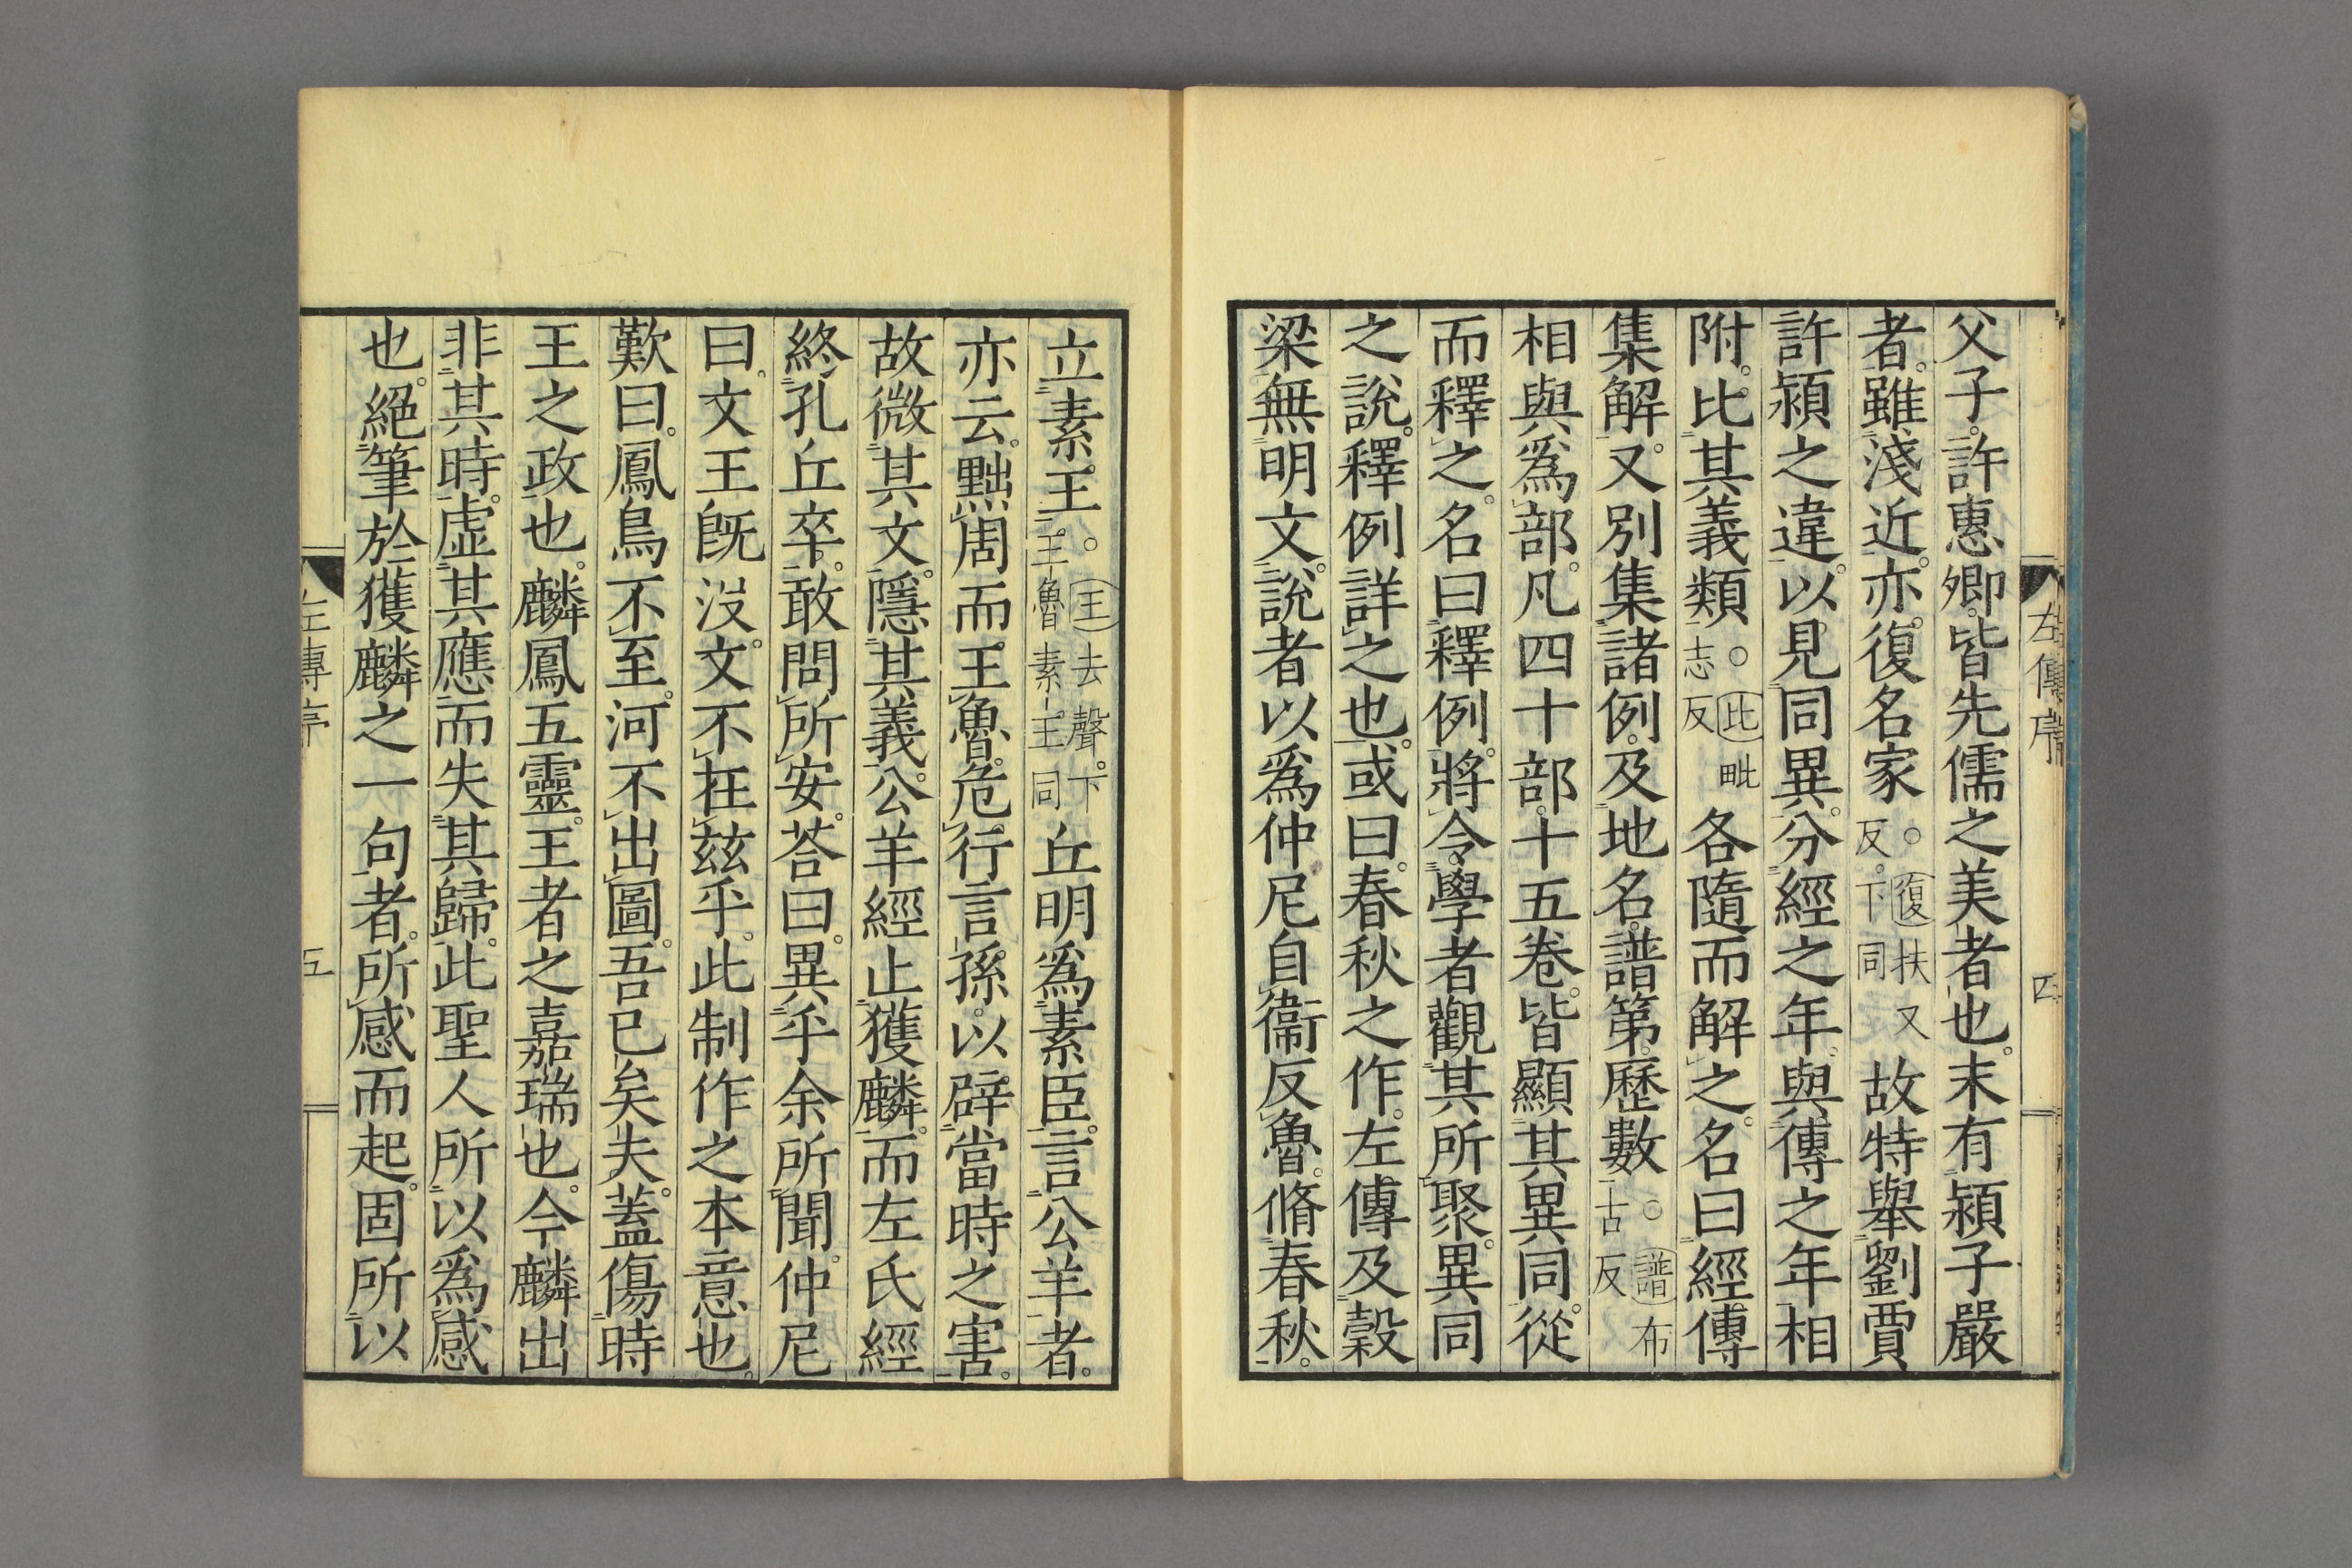 左傳序 四
父子。許惠卿。皆先儒之美者也。末有潁子嚴
者。雖淺近。亦。復名家○復扶又反。下同故特舉劉賈
許潁之違。以見同異。分經之年。與傳之年相
附。比其義類○比毗志反各隨而解之。名曰經傳
集解。又別集諸例。及地名。譜第。歷數○譜布古反
相與爲部。凡四十部。十五卷。皆顯其異同。從
而釋之。名曰釋例。將令學者觀其所聚。異同
之說。釋例詳之也。或曰。春秋之作。左傳及穀
梁無明文。說者以爲仲尼自衞反魯。脩春秋。
立素王。○王去聲。下王魯素王同丘明爲素臣。言公羊者。
亦云。黜周而王魯。危行言孫。以辟當時之害。
故微其文。隱其義。公羊經止獲麟。而左氏經
終孔丘卒。敢問所安。荅曰。異乎余所聞。仲尼
曰。文王旣沒。文不在茲乎。此制作之本意也。
歎曰。鳳鳥不至。河不出圖。吾已矣夫。蓋傷時
王之政也。麟鳳五靈。王者之嘉瑞也。今麟出
非其時。虛其應而失其歸。此聖人所以爲感
也。絕筆於獲麟之一句者。所感而起。固所以
左傳序 五